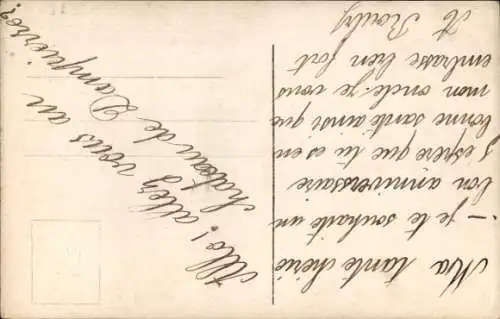 Ma tante chérie
— je te souhaite un
bon anniversaire
J espère que tu es en
bonne santé ainst que
mon oncle. je vous
embrasse bien fort
Allo! allez vous au
chateau de Dampierre?